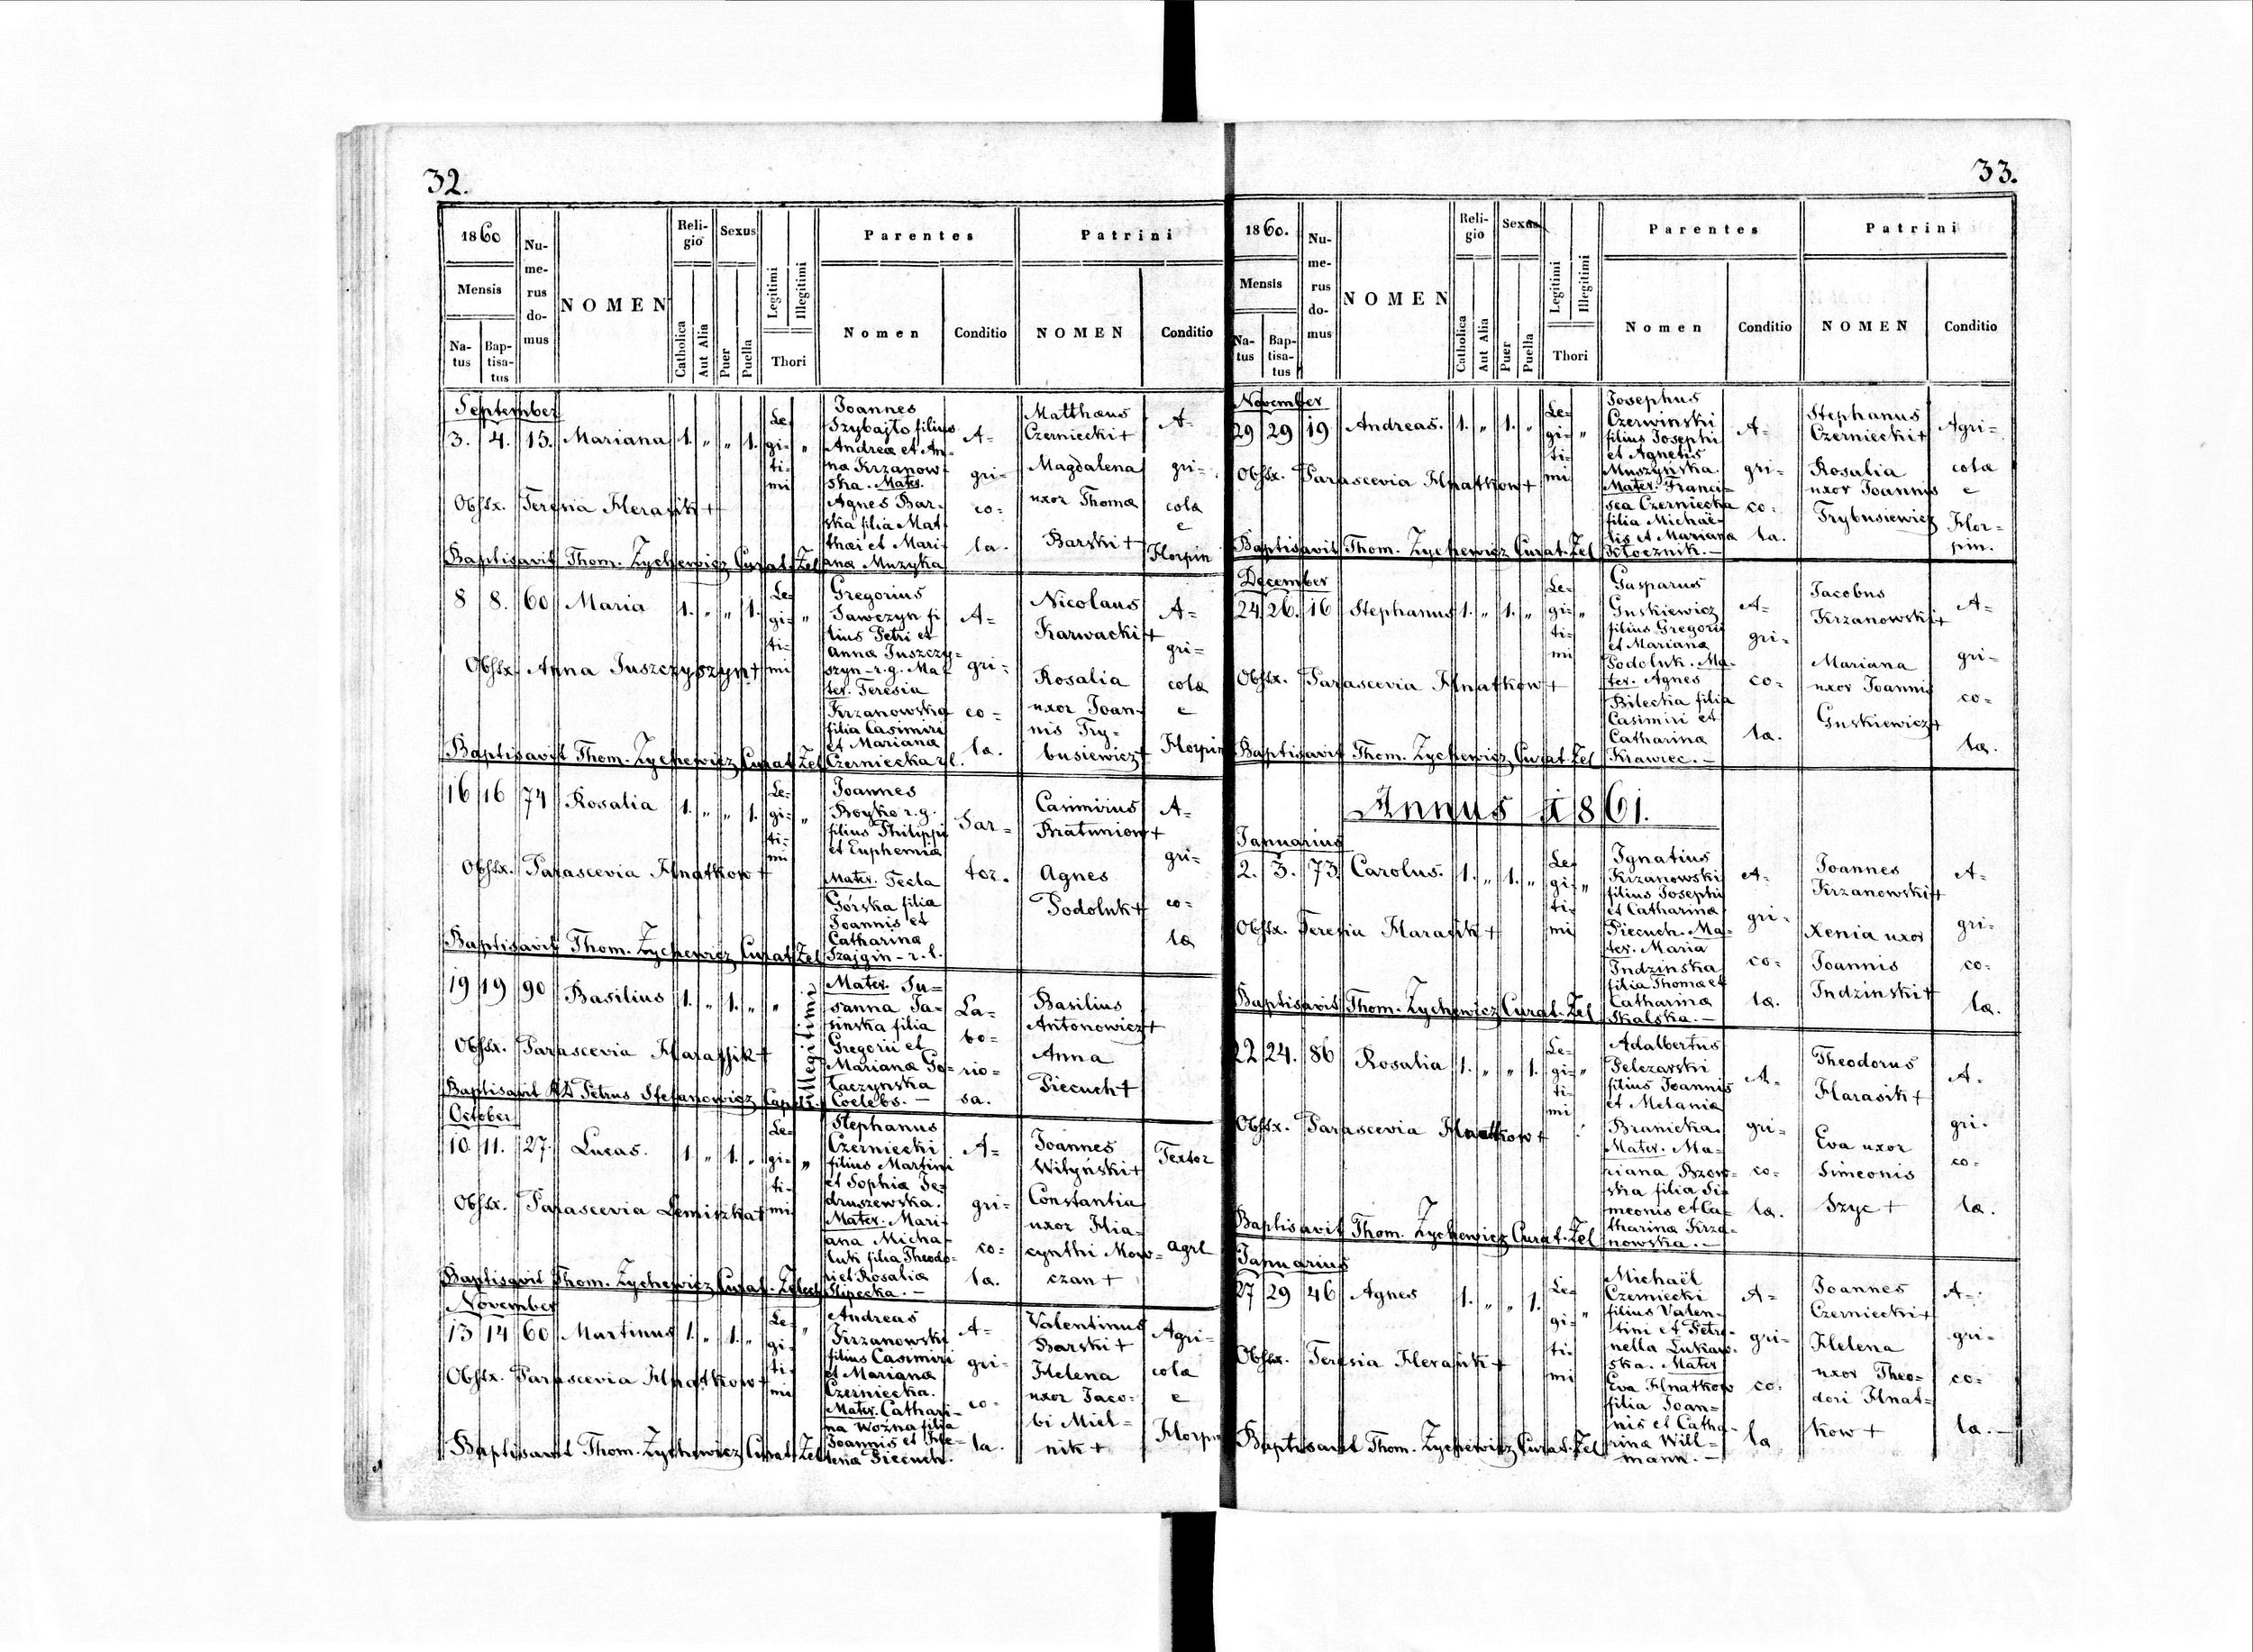 32.
1860
Mensis
Na-
tus
Bap-
tisa-
tus
Nu-
me-
rus
do-
mus
NOMEN
Reli-
gio
Catholica
Aut Alia
Sexus
Puer
Puella
Legitimi
Illegitimi
Thori
Parentes
Nomen
Conditio
Patrini
NOMEN
Conditio
September
3. 4. 15. Mariana 1. „ „ 1.
Le-
gi- „
ti-
mi
Joannes
Szybajło filius
Andreæ et An-
na Krzanow
ska. Mater.
Agnes Bar-
ska filia Mat
thæi et Mari
anæ Muzyka
A-
gri-
co-
la.
Matthæus
Czerniecki +
Magdalena
uxor Thomæ
Barski +
A-
gri-
colæ
e
Horpin
Obstx. Teresia Herasik +
Baptisavit Thom. Zychewicz Curat. Zel
8 8. 60 Maria 1. „ „ 1.
Le-
gi- „
ti-
mi
Gregorius
Sawczyn fi
lius Petri et
Annæ Juszczy-
szyn - r.g. Ma
ter. Teresia
Krzanowska
filia Casimiri
et Mariana
Czerniecka r.l.
A-
gri-
co-
la.
Nicolaus
Karwacki +
Rosalia
uxor Joan-
nis Try-
busiewicz +
A-
gri-
colæ
e
Horpin
Obstx. Anna Juszczyszyn +
Baptisavit Thom. Zychewicz Curat. Zel
16 16 74 Rosalia 1. „ „ 1.
Le-
gi- „
ti-
mi
Joannes
Boyko r.g.
filius Philippi
et Euphemiæ
Mater. Tecla
Górska filia
Joannis et
Catharina
Szajgin - r.l.
Sar-
tor.
Casimirus
Bratuniow +
Agnes
Podoluk +
A-
gri-
co-
læ
Obstx. Parascevia Hnatkow +
Baptisavit Thom. Zychewicz Curat. Zel
19 19 90 Basilius 1. „ 1. „ „
Illegitimi
Mater. Su-
sanna Ja-
sinska filia
Gregorii et
Mariana Go-
łaczynska
Coelebs. —
La-
bo-
rio-
sa.
Basilius
Antonowicz +
Anna
Piecuch +
Obstx. Parascevia Harassik +
Baptisavit RD Petrus Stefanowicz
October
10 11. 27. Lucas. 1. „ 1. „
Le-
gi- „
ti-
mi
Stephanus
Czerniecki
filius Martini
et Sophia Je-
druszewska.
Mater. Mari
ana Micha
luk filia Theodo-
ri et Rosalia
Slipecka. —
A-
gri-
co-
la.
Joannes
Wityński +
Constantia
uxor Hia-
cynthi Mow-
czan +
Textor
agrl
Obstx. Parascevia Lemiszka +
Baptisavit Thom. Zychewicz Curat. Zelech
November
13 14 60 Martinus 1. „ 1. „
Le-
gi- „
ti-
mi
Andreas
Krzanowski
filius Casimiri
et Mariana
Czerniecka.
Mater. Cathari-
na Woźna filia
Joannis et He-
lena Piecuch.
A-
gri-
co-
la.
Valentinus
Barski +
Helena
uxor Jaco-
bi Miel-
nik +
Agri-
colæ
e
Horpin
Obstx. Parascevia Hnatkow +
Baptisavit Thom. Zychewicz Curat. Zel
33.
1860.
Mensis
Na-
tus
Bap-
tisa-
tus
Nu-
me-
rus
do-
mus
NOMEN
Reli-
gio
Catholica
Aut Alia
Sexus
Puer
Puella
Legitimi
Illegitimi
Thori
Parentes
Nomen
Conditio
Patrini
NOMEN
Conditio
November
29 29 19 Andreas. 1. „ 1. „
Le-
gi- „
ti-
mi
Josephus
Czerwinski
filius Josephi
et Agnetis
Muszyńska.
Mater. Franci-
sca Czerniecka
filia Michaë-
lis et Mariana
Kłocznik. —
A-
gri-
co-
la.
Stephanus
Czerniecki +
Rosalia
uxor Joannis
Trybusiewicz
Agri-
colæ
e
Hor-
pin.
Obstx. Parascevia Hnatkow +
Baptisavit Thom. Zychewicz Curat. Zel
December
24 26. 16 Stephanus 1. „ 1. „
Le-
gi- „
ti-
mi
Gasparus
Guskiewicz
filius Gregorii
et Mariana
Podoluk. Ma-
ter. Agnes
Bilecka filia
Casimiri et
Catharina
Krawiec. —
A-
gri-
co-
la.
Jacobus
Krzanowski +
Mariana
uxor Joannis
Guskiewicz +
A-
gri-
co-
læ.
Obstx. Parascevia Hnatkow +
Baptisavit Thom. Zychewicz Curat. Zel
Annus 1861.
Januarius
2. 3. 73. Carolus. 1. „ 1. „
Le-
gi- „
ti-
mi
Ignatius
Krzanowski
filius Josephi
et Catharina
Piecuch. Ma-
ter. Maria
Indzinska
filia Thomæ et
Catharina
Skalska. —
A-
gri-
co-
la.
Joannes
Krzanowski +
Xenia uxor
Joannis
Indzinski +
A-
gri-
co-
læ.
Obstx. Teresia Harasik +
Baptisavit Thom. Zychewicz Curat. Zel
22 24. 86 Rosalia 1. „ „ 1.
Le-
gi- „
ti-
mi
Adalbertus
Pelczarski
filius Joannis
et Melania
Branicka.
Mater. Ma-
riana Bzow-
ska filia Si-
meonis et Ca-
tharina Krza-
nowska. —
A-
gri-
co-
la.
Theodorus
Harasik +
Eva uxor
Simeonis
Szyc +
A-
gri-
co-
læ.
Obstx. Parascevia Hnatkow +
Baptisavit Thom. Zychewicz Curat. Zel
Januarius
27 29 46 Agnes 1. „ „ 1.
Le-
gi- „
ti-
mi
Michaël
Czerniecki
filius Valen-
tini et Petro-
nella Lukaw-
ska. Mater
Eva Hnatkow
filia Joan-
nis et Catha-
rina Will-
mann. —
A-
gri-
co-
la
Joannes
Czerniecki +
Helena
uxor Theo-
dori Hnat-
kow +
A-
gri-
co-
læ. —
Obstx. Teresia Herasik +
Baptisavit Thom. Zychewicz Curat. Zel